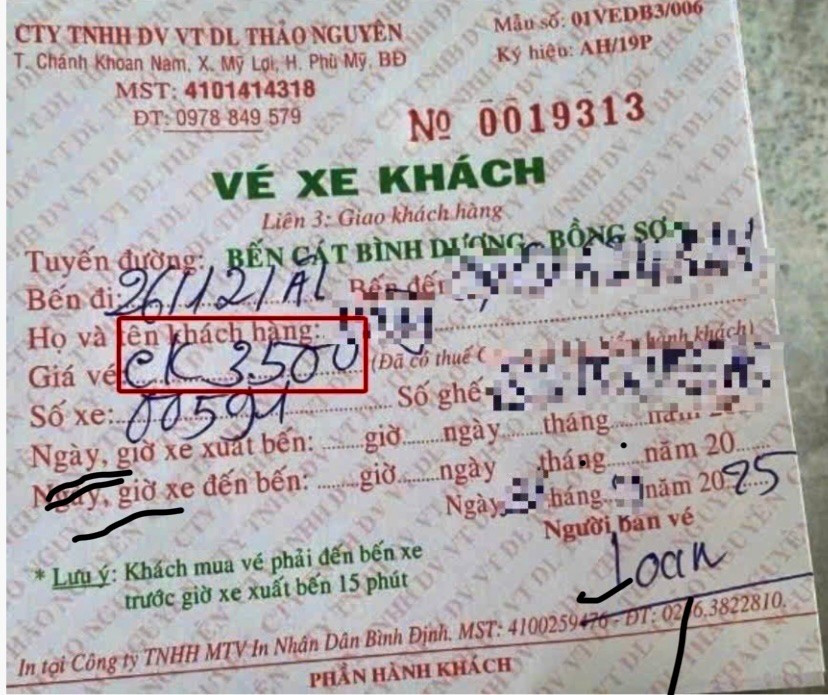 CTY TNHH DV VT DL THẢO NGUYÊN
T. Chánh Khoan Nam, X. Mỹ Lợi, H. Phù Mỹ, BĐ
MST: 4101414318
ĐT: 0978 849 579
Mẫu số: 01VEDB3/006
Ký hiệu: AH/19P
Nº 0019313
VÉ XE KHÁCH
Liên 3: Giao khách hàng
Tuyến đường: BẾN CÁT BÌNH DƯƠNG - BỒNG SƠN
Bến đi: 26/12/Al Bến đến
Họ và tên khách hàng:
Giá vé CK 3.500 (Đã có thuế hành khách)
Số xe: 00591 Số ghế
Ngày, giờ xe xuất bến: ......giờ......ngày......tháng......năm 20......
Ngày, giờ xe đến bến: ......giờ......ngày......tháng......năm 20......
Ngày tháng năm 2025
Người bán vé
Loan
* Lưu ý: Khách mua vé phải đến bến xe
trước giờ xe xuất bến 15 phút
In tại Công ty TNHH MTV In Nhân Dân Bình Định. MST: 4100259476 - ĐT: 0256.3822810.
PHẦN HÀNH KHÁCH